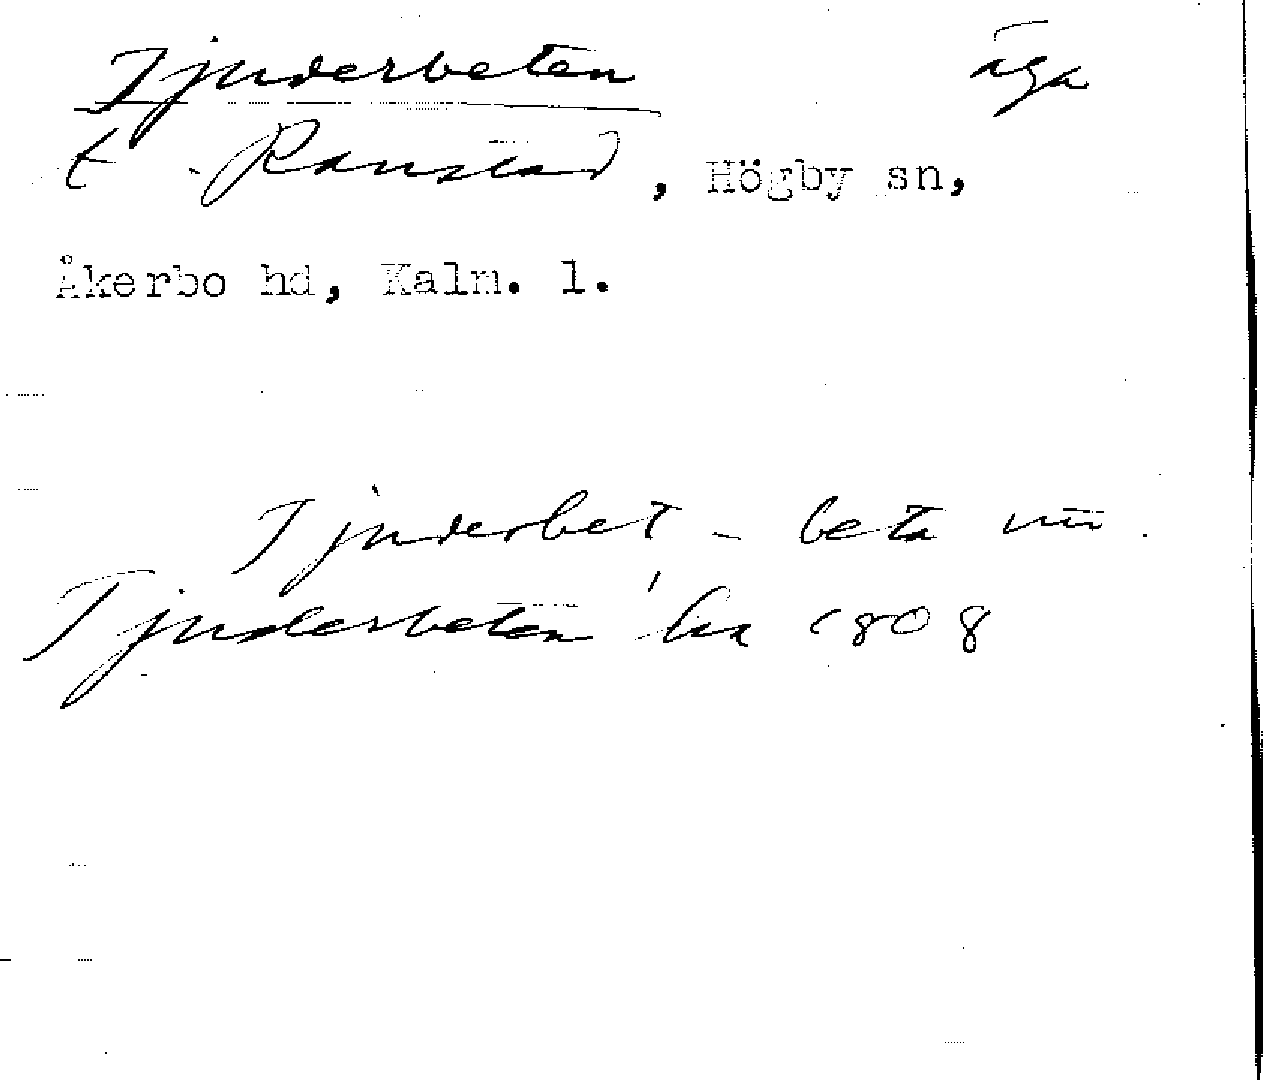 Tjuderbeten äga
t. Ramstad, Högby sn,
Åkerbo hd, Kalm. l.
Tjuderbet - beta
Tjuderbeten ha 1808